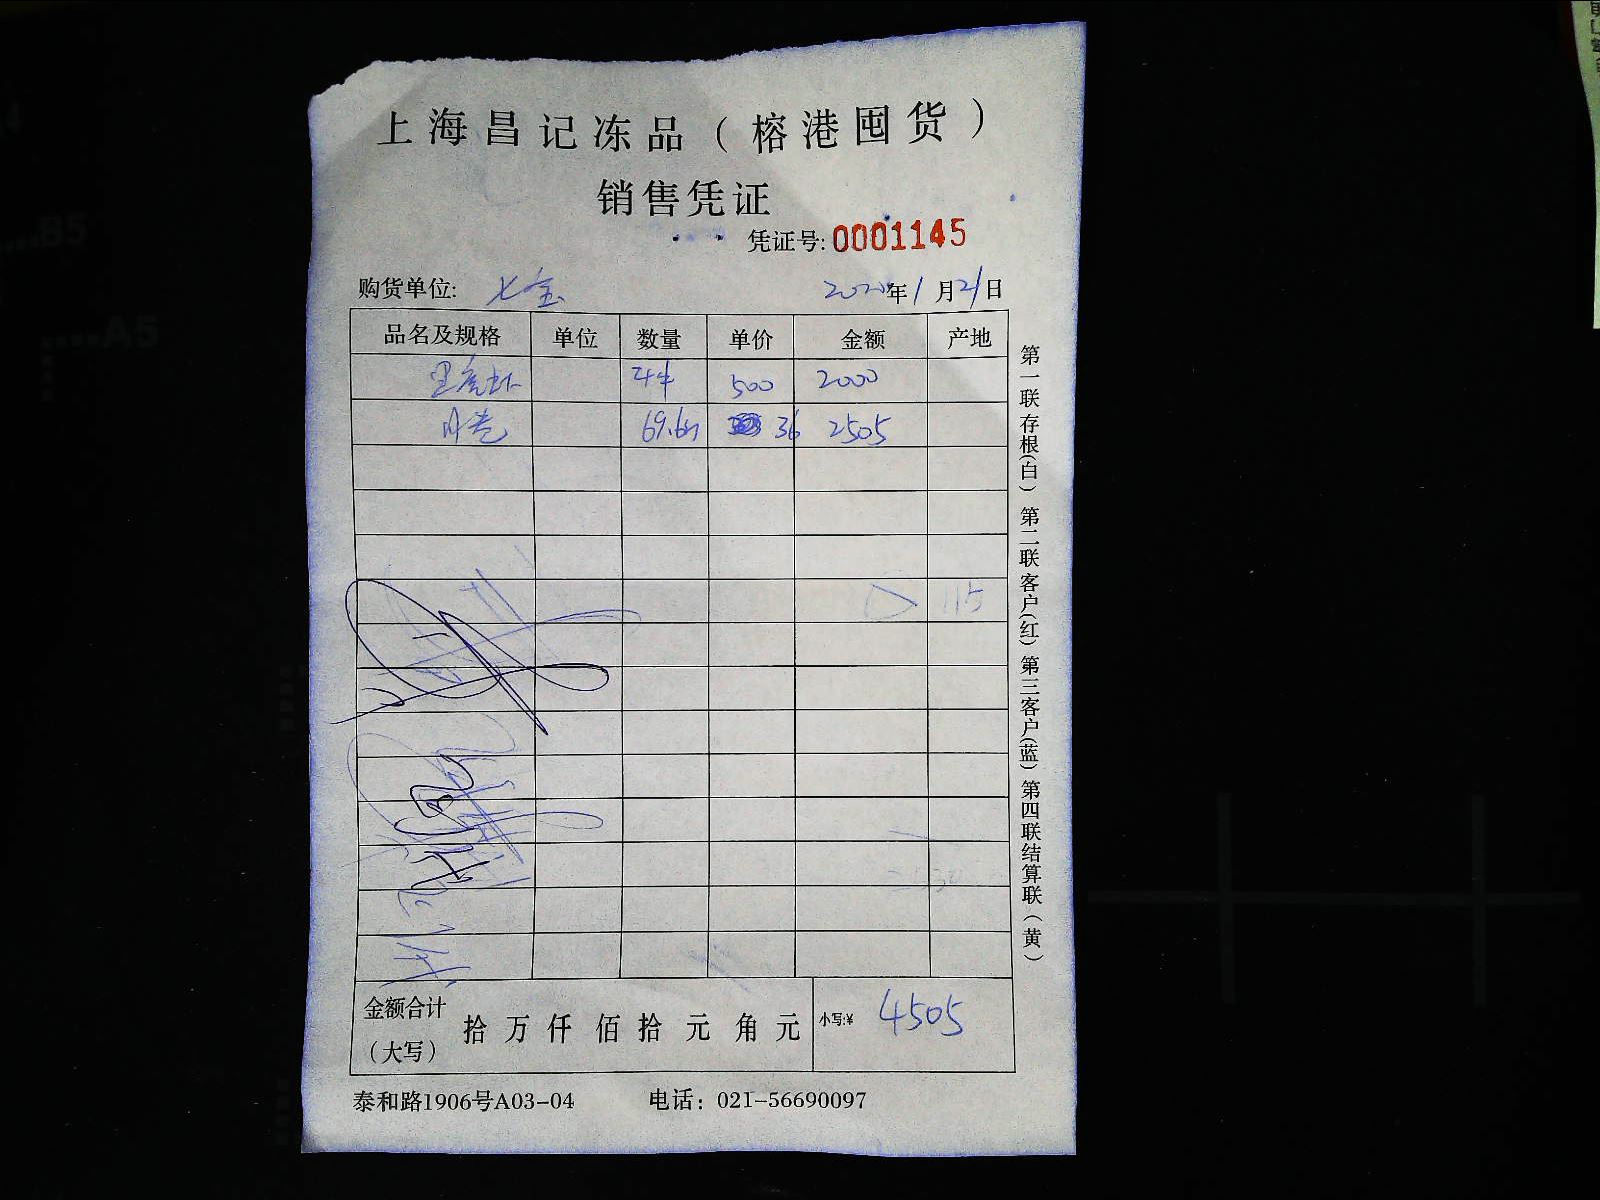 上海昌记冻品（榕港囤货）
销售凭证
凭证号:0001145
购货单位: 七宝 2020年1月21日
品名及规格 单位 数量 单价 金额 产地
黑虎虾 4件 500 2000
月亮 69.6斤 36 2505
115
金额合计（大写） 拾万仟佰拾元角元 小写:¥ 4505
泰和路1906号A03-04 电话：021-56690097
第一联存根(白) 第二联客户(红) 第三客户(蓝) 第四联结算联(黄)
B5
A5